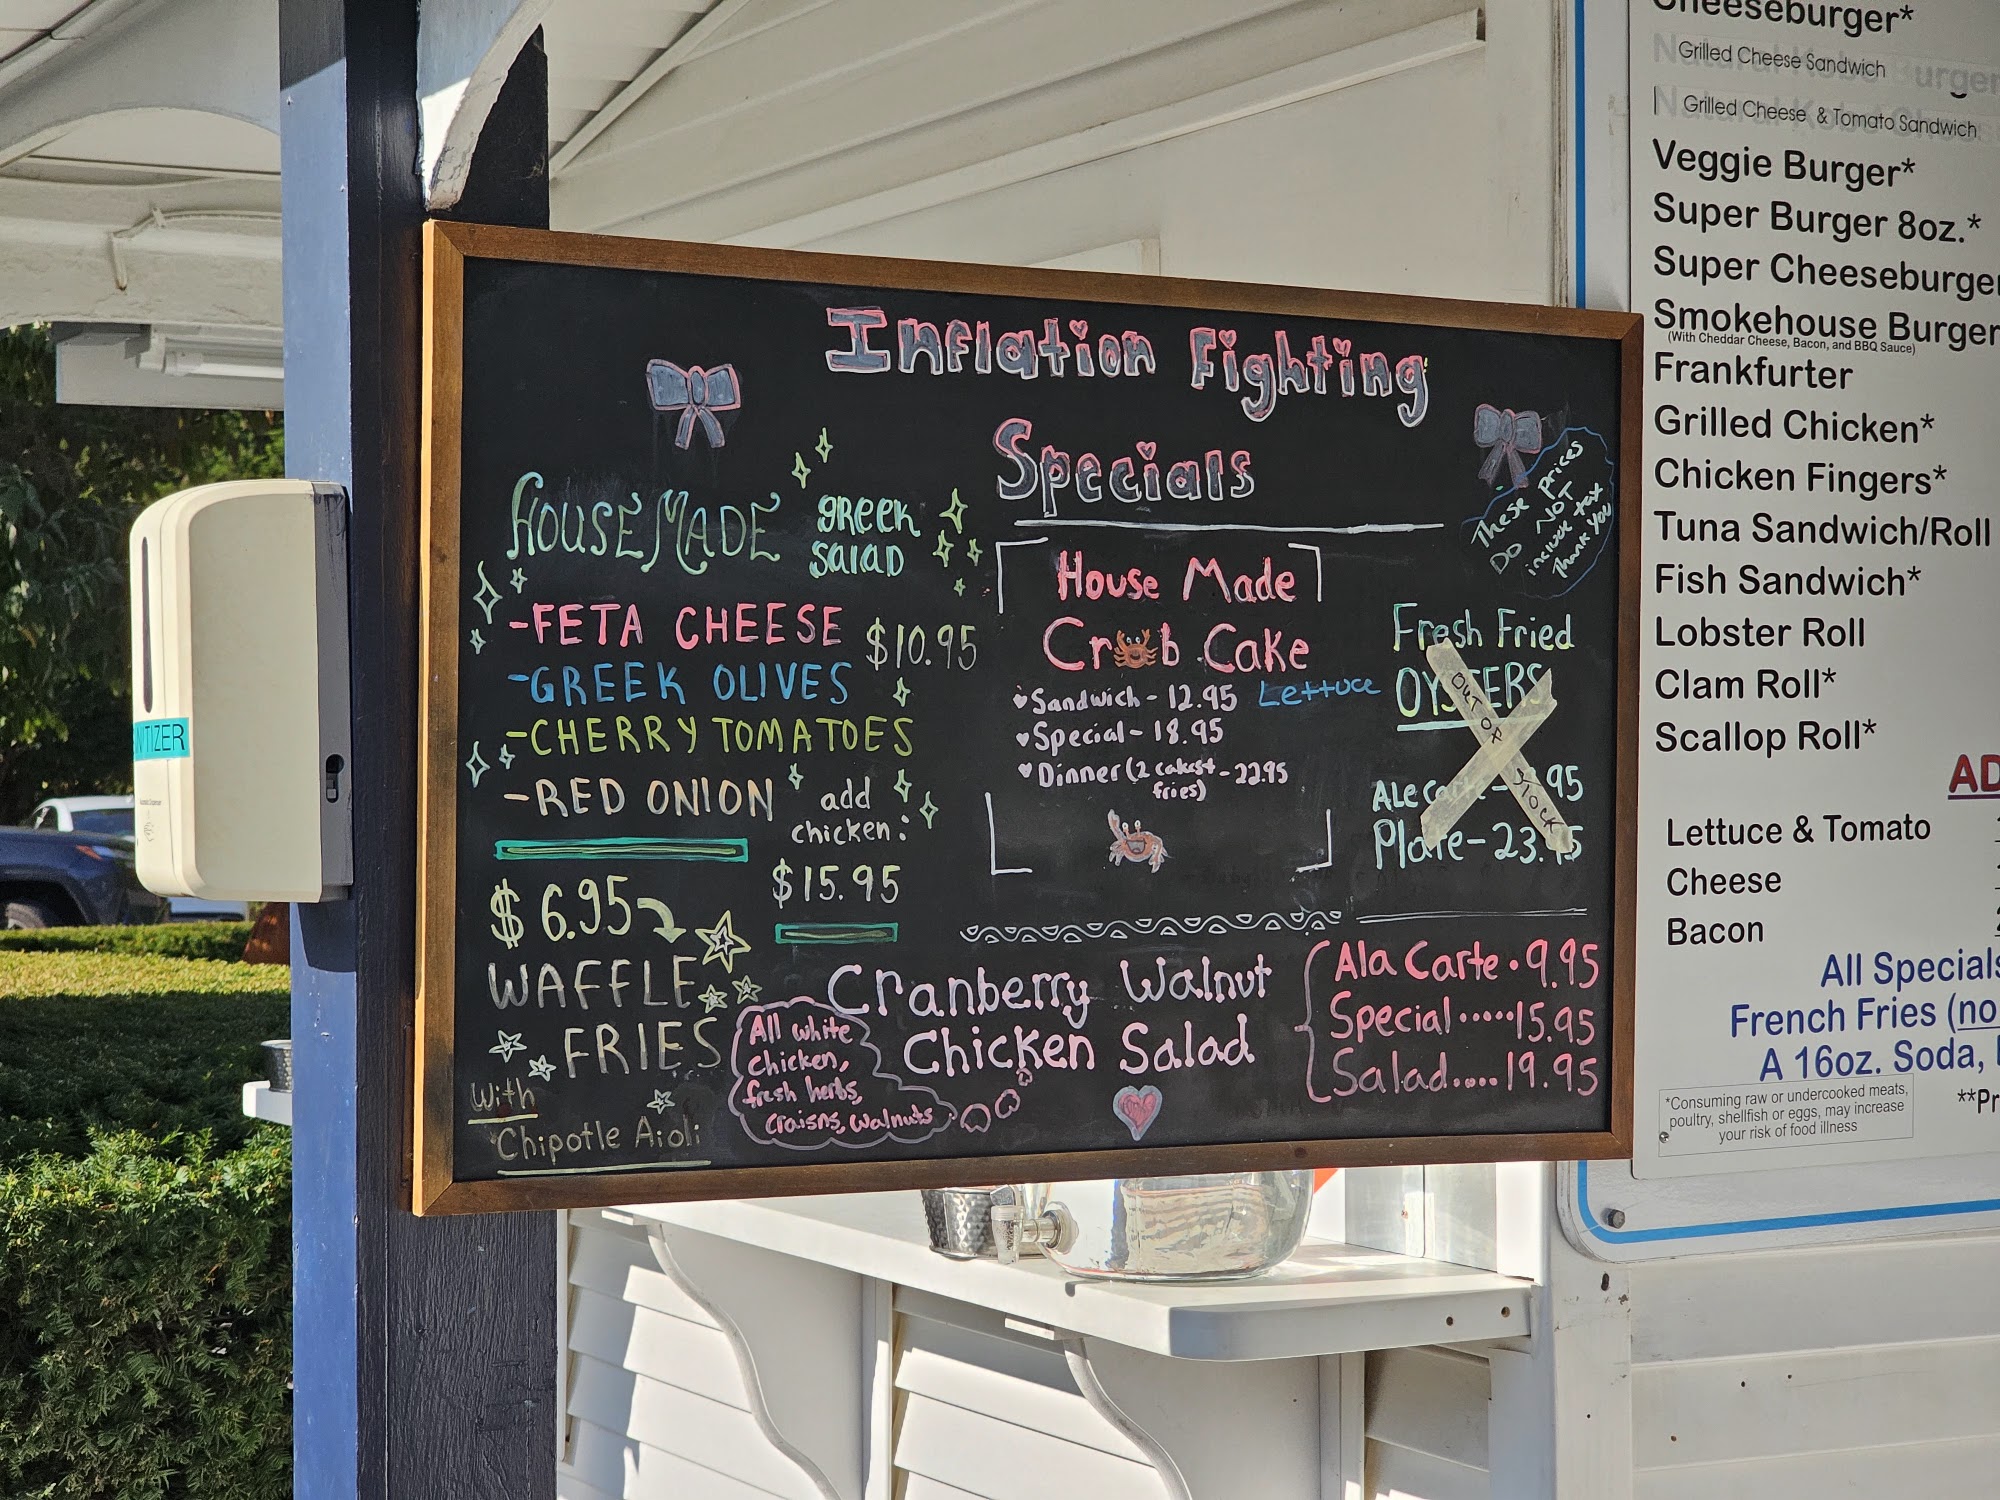 Inflation Fighting
Specials
These prices
DO NOT
include tax
Thank You
HOUSE MADE
greek
salad
-FETA CHEESE
$10.95
-GREEK OLIVES
-CHERRY TOMATOES
-RED ONION
add
chicken:
$15.95
$6.95
WAFFLE
FRIES
With
Chipotle Aioli
House Made
Crab Cake
Sandwich - 12.95 Lettuce
Special - 18.95
Dinner (2 cakes + - 22.95
fries)
Fresh Fried
OYSTERS
OUT OF
STOCK
Plate - 23.95
Cranberry Walnut
Chicken Salad
All white
chicken,
fresh herbs,
craisns, walnuts
Ala Carte . 9.95
Special ..... 15.95
Salad ..... 19.95
Cheeseburger*
Grilled Cheese Sandwich
Grilled Cheese & Tomato Sandwich
Veggie Burger*
Super Burger 8oz.*
Super Cheeseburger
Smokehouse Burger
(With Cheddar Cheese, Bacon, and BBQ Sauce)
Frankfurter
Grilled Chicken*
Chicken Fingers*
Tuna Sandwich/Roll
Fish Sandwich*
Lobster Roll
Clam Roll*
Scallop Roll*
AD
Lettuce & Tomato
Cheese
Bacon
All Specials
French Fries (no
A 16oz. Soda,
*Consuming raw or undercooked meats,
poultry, shellfish or eggs, may increase
your risk of food illness
**Pr
ITIZER